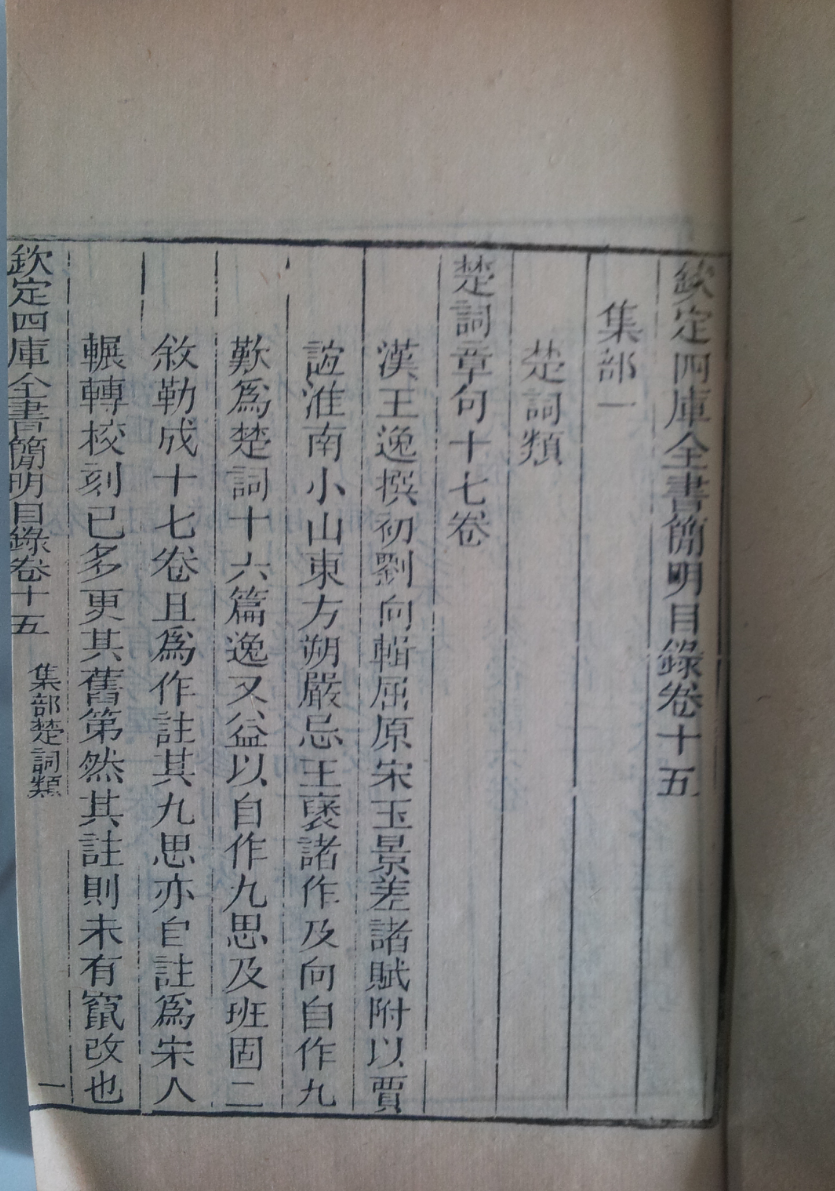 欽定四庫全書簡明目錄卷十五
集部一
楚詞類
楚詞章句十七卷
漢王逸撰初劉向輯屈原宋玉景差諸賦附以賈
誼淮南小山東方朔嚴忌王褒諸作及向自作九
歎爲楚詞十六篇逸又益以自作九思及班固二
敘勒成十七卷且爲作註其九思亦自註爲宋人
輾轉校刻已多更其舊第然其註則未有竄改也
欽定四庫全書簡明目錄卷十五 集部楚詞類 一